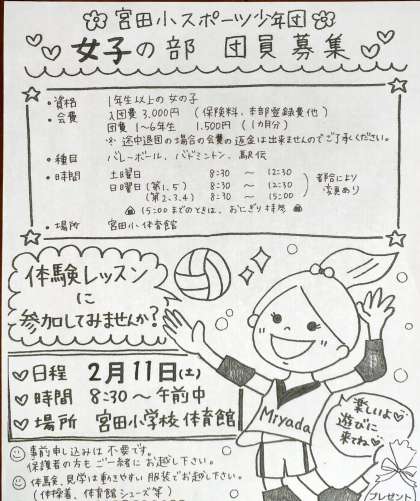 宮田小スポーツ少年団
女子の部 団員募集
・資格 1年生以上の女の子
・会費 入団費 3,000円 (保険料、本部登録費他)
団費 1〜6年生 1,500円 (1カ月分)
※ 途中退団の場合の会費の返金は出来ませんのでご了承ください。
・種目 バレーボール、バドミントン、駅伝
・時間 土曜日 8:30 〜 12:30
日曜日 (第1.5) 8:30 〜 12:30
(第2.3.4) 8:30 〜 15:00
都合により変更あり
15:00までのときは、おにぎり持参
・場所 宮田小体育館
体験レッスン
に
参加してみませんか?
日程 2月11日(土)
時間 8:30〜午前中
場所 宮田小学校体育館
Miyada
楽しいよ
遊びに
来てね
事前申し込みは不要です。
保護者の方もご一緒にお越し下さい。
体験、見学は動きやすい服装でお越し下さい。
(体操着、体育館シューズ等)
プレゼント